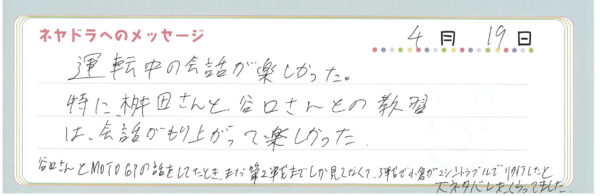 ネヤドラへのメッセージ 4月 19日
運転中の会話が楽しかった。
特に、桝田さんと、谷口さんとの教習
は、会話がもり上がって楽しかった。
谷口さんとMOTO GPの話をしてたとき、まだ第2戦までしか見てなくて、3戦で小倉がマシントラブルでリタイアしたと
大ネタバレをくらってました